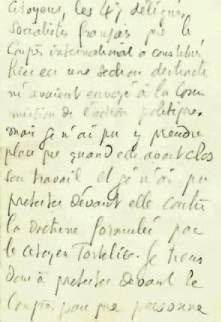 Citoyens, les 47 délégués
socialistes français que le
Congrès international a constitués
hier en une section distincte
m'avaient envoyé à la Com
mission de l'action politique,
mais je n'ai pu y prendre
place que quand elle avait clos
son travail et je n'ai pu
protester devant elle contre
la doctrine formulée par
le citoyen Tortelier. Je tiens
donc à protester devant le
Congrès pour que personne